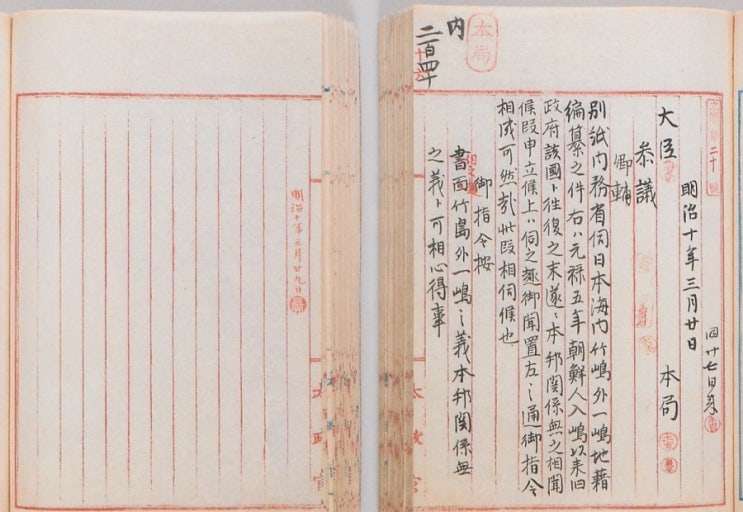 明治十年三月廿日
本局
大臣
参議
卿輔
別紙内務省伺日本海内竹嶋外一嶋地藉
編纂之件右ハ元禄五年朝鮮人入嶋以来旧
政府該国ト往復之末遂ニ本邦関係無之相聞
候段申立候上ハ伺之趣御聞置左之通御指令
相成可然哉此段相伺候也
御指令按
伺之趣
書面竹島外一嶋之義本邦関係無
之義ト可相心得事
本局
内
二百四十
太政官
明治十年三月廿九日
太政官